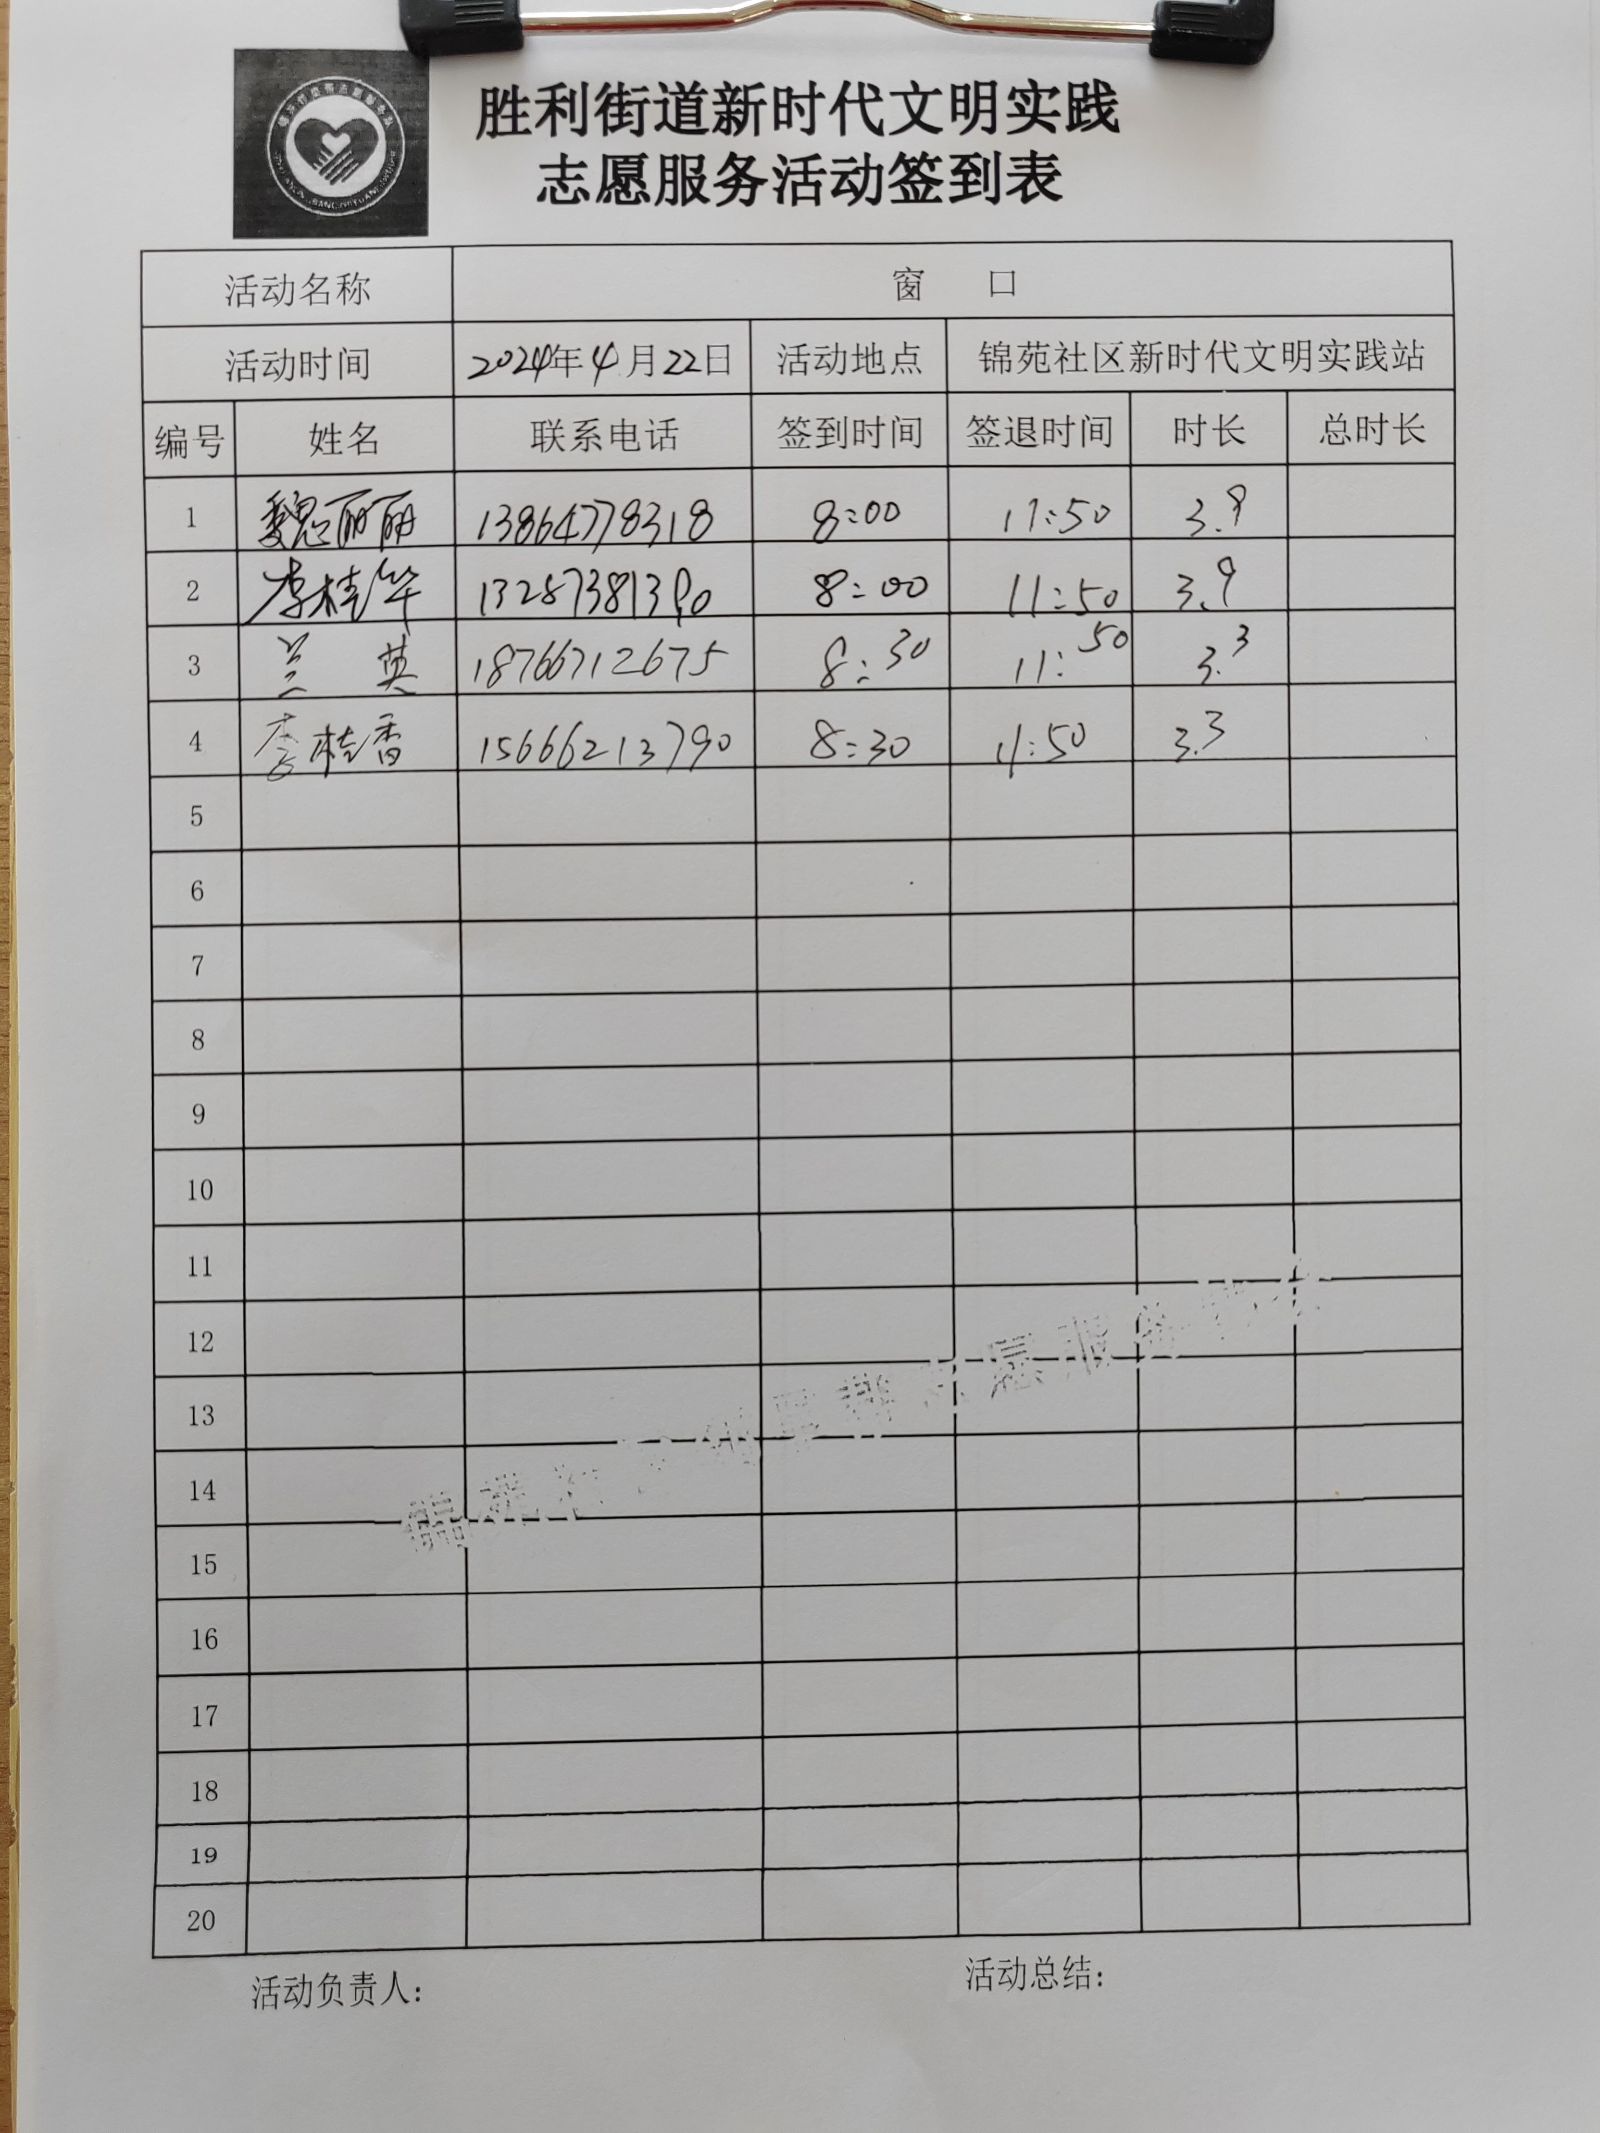 胜利街道新时代文明实践
志愿服务活动签到表
活动名称 窗 口
活动时间 2024年4月22日 活动地点 锦苑社区新时代文明实践站
编号 姓名 联系电话 签到时间 签退时间 时长 总时长
1 魏丽丽 13864778318 8:00 11:50 3.9
2 李桂华 13287381390 8:00 11:50 3.9
3 兰 英 18766712675 8:30 11:50 3.3
4 李桂香 15666213790 8:30 11:50 3.3
5
6
7
8
9
10
11
12
13
14
15
16
17
18
19
20
活动负责人: 活动总结: